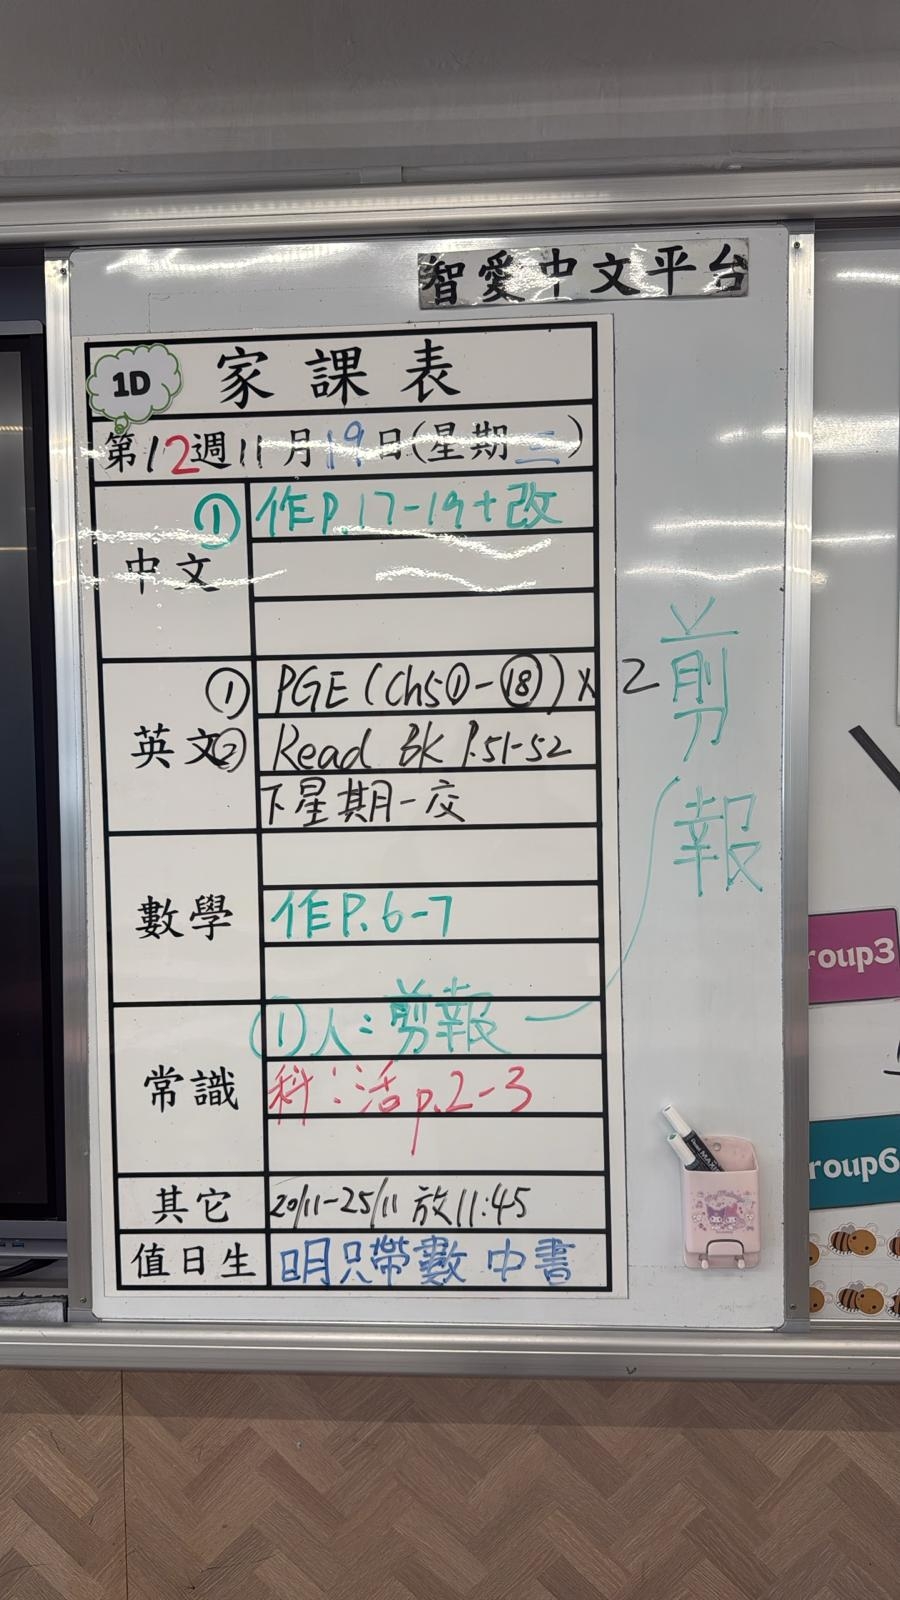 智愛中文平台
1D
家課表
第12週11月19日(星期三)
中文
① 作P.17-19+改
英文
① PGE (Ch5①-⑱) x 2
② Read BK P.51-52
下星期一交
數學
作P.6-7
常識
① 人:剪報
科:活p.2-3
其它
20/11-25/11 放11:45
值日生
明只帶數 中書
剪報
roup3
roup6